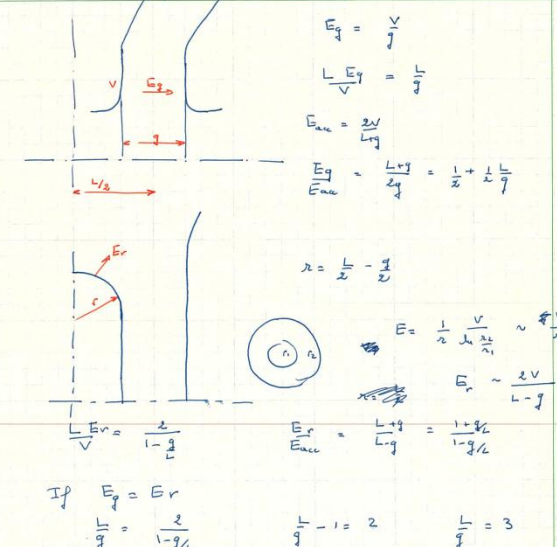 Eg = V/g
V
Eg
L Eg/V = L/g
Eacc = 2V/L+g
g
Eg/Eacc = L+g/2g = 1/2 + 1/2 L/g
L/2
Er
r
r = L/2 - g/2
r1 r2
E = 1/r V/ln r2/r1 ~
Er ~ 2V/L-g
L Er/V = 2/1-g/L
Er/Eacc = L+g/L-g = 1+g/L/1-g/L
If Eg = Er
L/g = 2/1-g/L
L/g - 1 = 2
L/g = 3